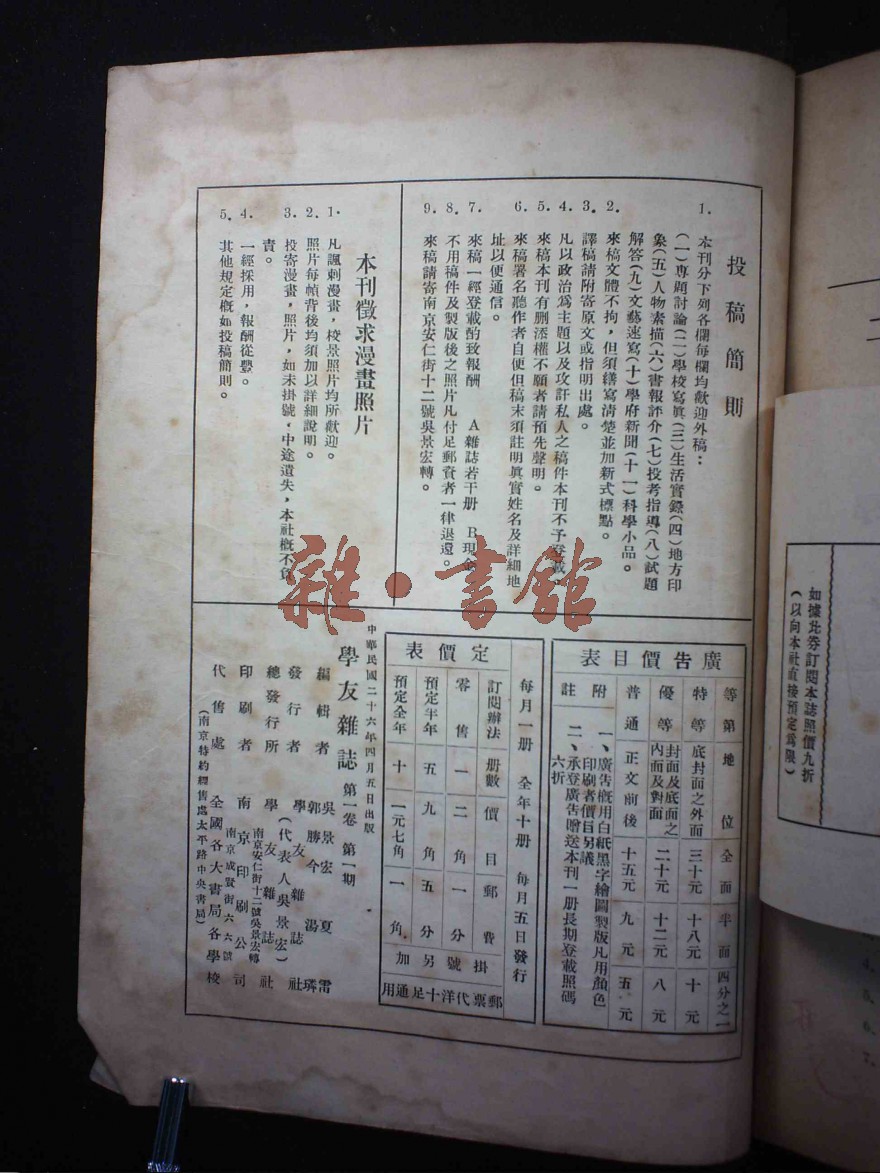 如據此券訂閱本誌照價九折
(以向本社直接預定爲限)
投稿簡則
1. 本刊分下列各欄每欄均歡迎外稿：
(一)專題討論(二)學校寫眞(三)生活實錄(四)地方印
象(五)人物素描(六)書報評介(七)投考指導(八)試題
解答(九)文藝速寫(十)學府新聞(十一)科學小品。
2. 來稿文體不拘，但須繕寫清楚並加新式標點。
3. 譯稿請附寄原文或指明出處。
4. 凡以政治爲主題以及攻訐私人之稿件本刊不予登載。
5. 來稿本刊有删添權不願者請預先聲明。
6. 來稿署名聽作者自便但稿末須註明眞實姓名及詳細地
址以便通信。
7. 來稿一經登載酌致報酬 A雜誌若干册 B現金
8. 不用稿件及製版後之照片凡付足郵資者一律退還。
9. 來稿請寄南京安仁街十二號吳景宏轉。
本刊徵求漫畫照片
1. 凡諷刺漫畫，校景照片均所歡迎。
2. 照片每幀背後均須加以詳細說明。
3. 投寄漫畫，照片，如未掛號，中途遺失，本社槪不負
責。
4. 一經採用，報酬從豐。
5. 其他規定槪如投稿簡則。
廣告價目表
等第 地位 全面 半面 四分之一
特等 底封面之外面 三十元 十八元 十元
優等 封面及底面之內面及對面 二十元 十二元 八元
普通 正文前後 十五元 九元 五元
附註 一、廣告槪用白紙黑字繪圖製版凡用顏色
印刷者價目另議
二、承登廣告贈送本刊一册長期登載照碼
六折
每月一册 全年十册 每月五日發行
定價表
訂閱辦法 册數 價目 郵費 掛號另加
零售 一 二角 一分
預定半年 五 九角 五分
預定全年 十 一元七角 一角
郵票代洋十足通用
中華民國二十六年四月五日出版
學友雜誌 第一卷 第一期
編輯者 吳景宏 夏雷
郭勝今 湯璘
發行者 學友雜誌社
(代表人吳景宏)
總發行所 學友雜誌社
南京安仁街十二號吳景宏轉
印刷者 南京印刷公司
南京成賢街六六號
代售處 全國各大書局各學校
(南京特約經售處太平路中央書局)
雜·書館